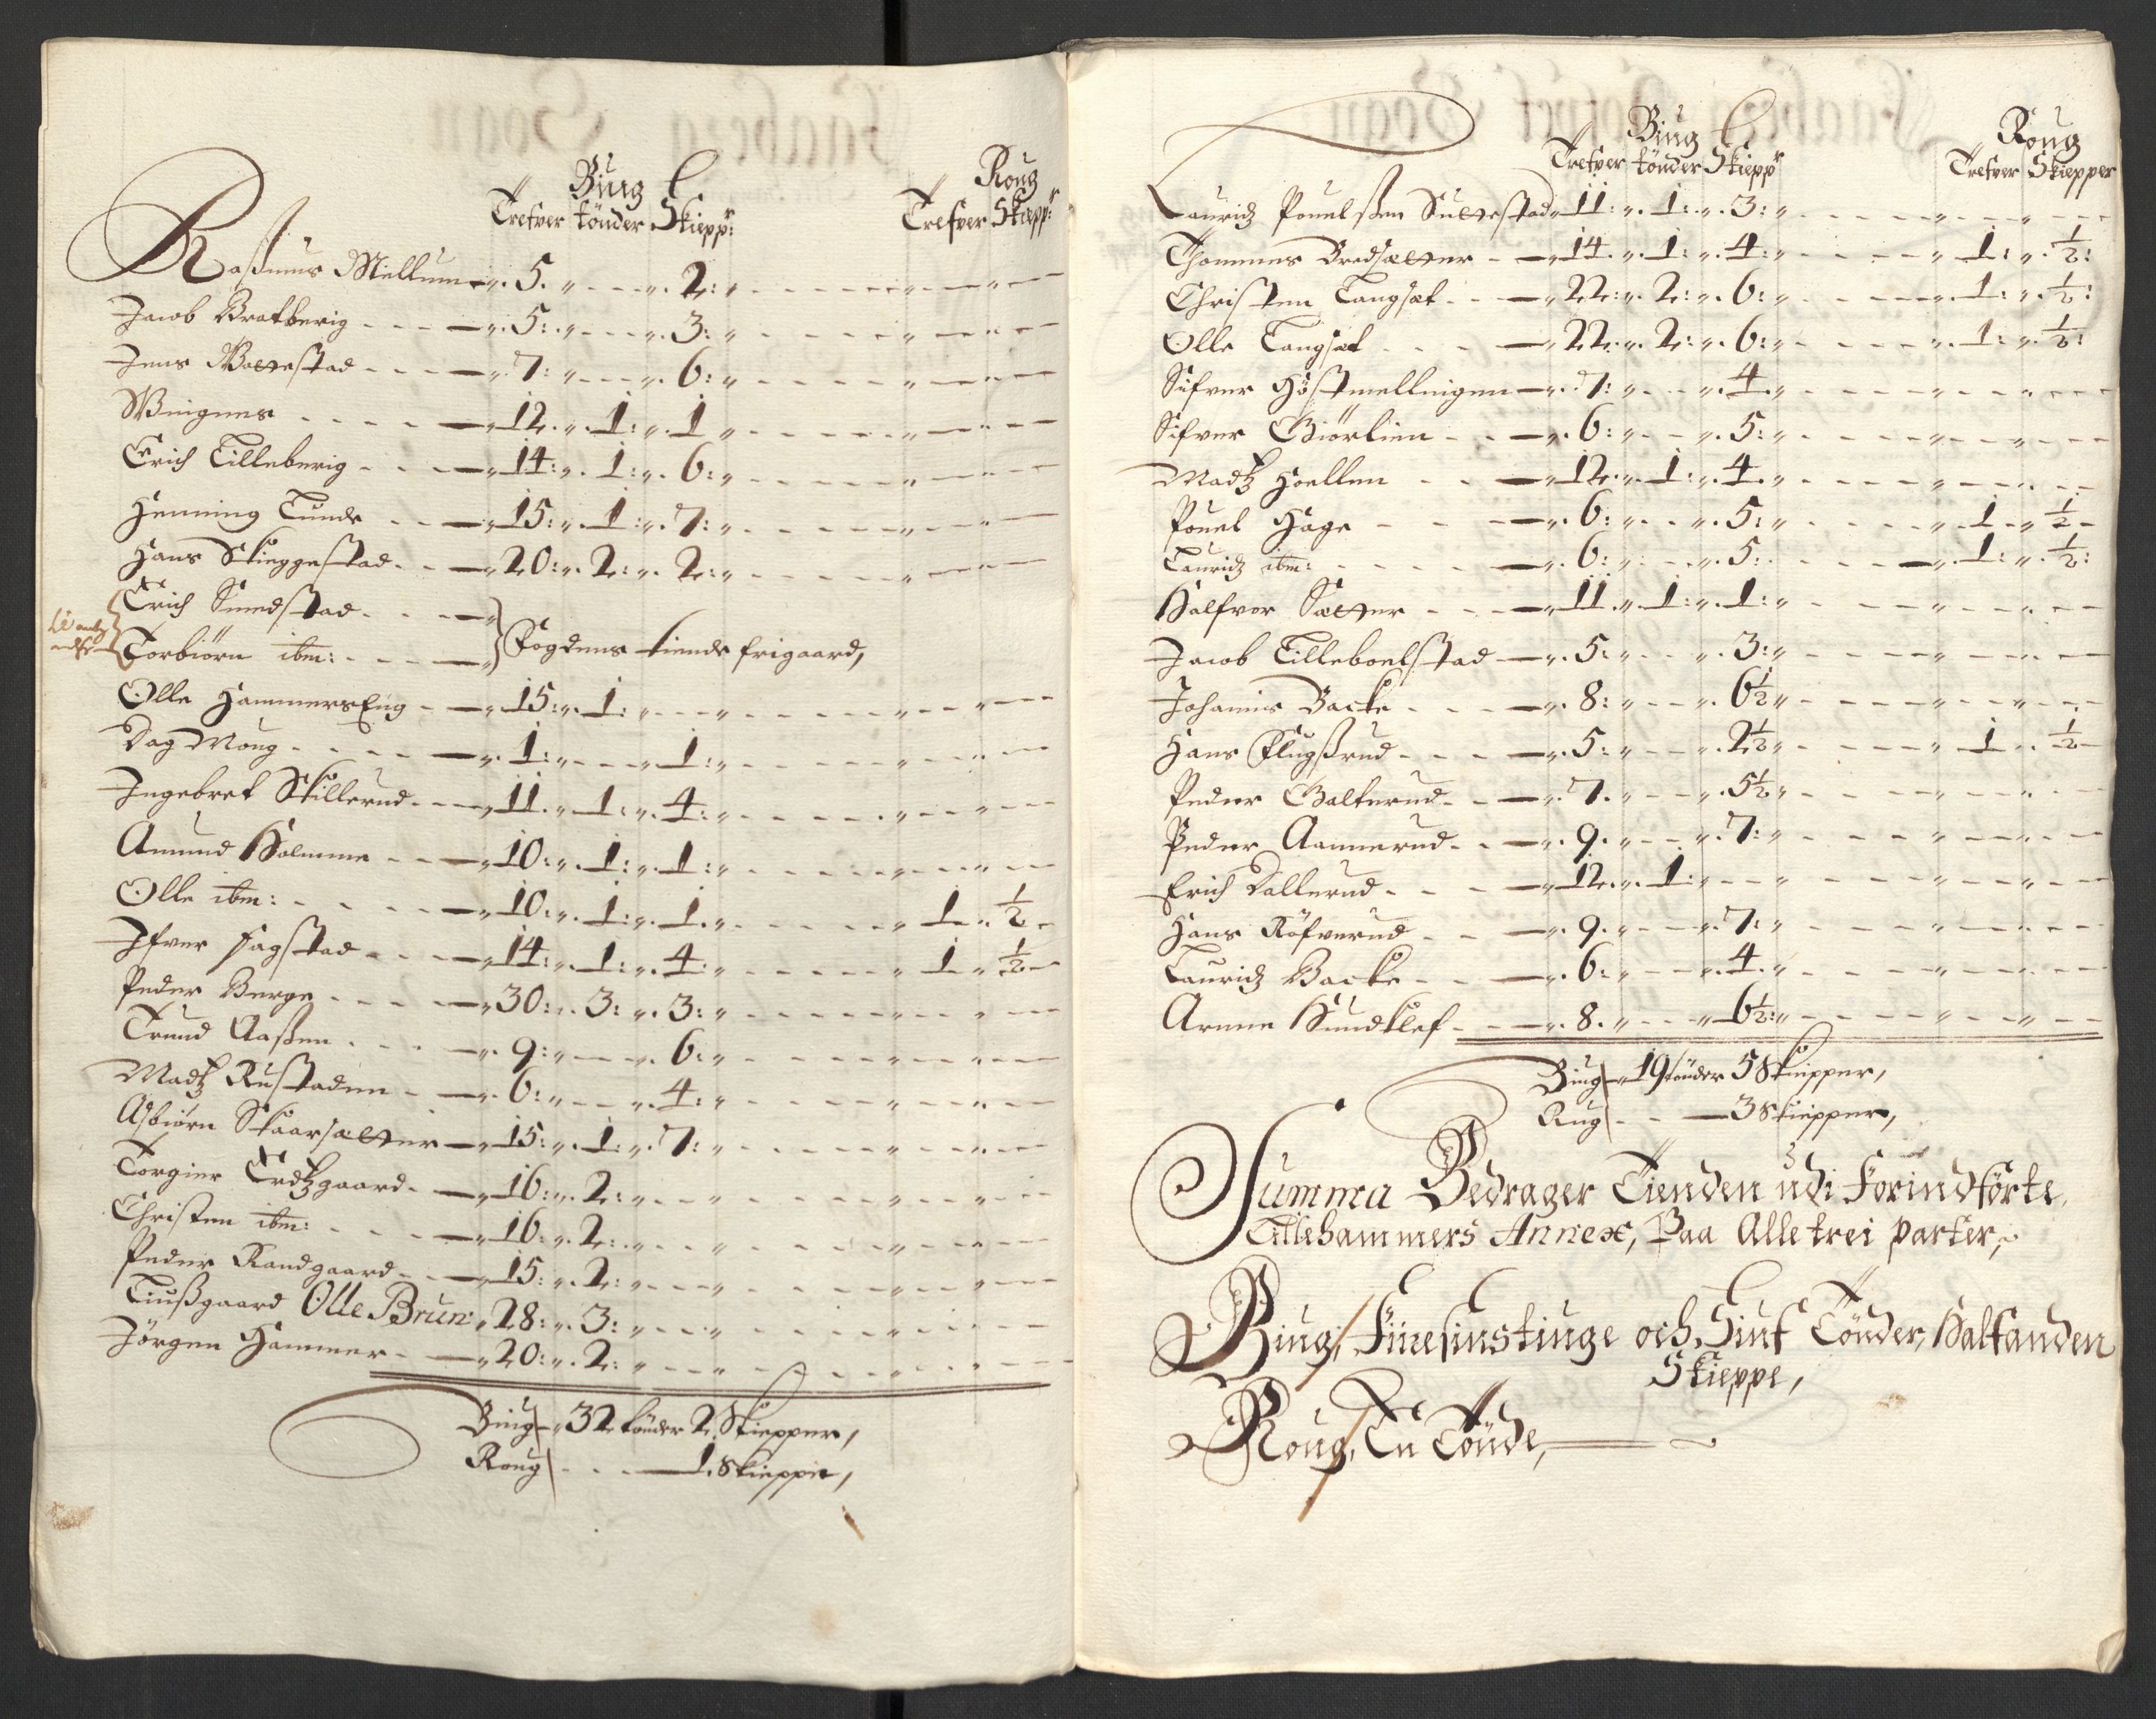 Biug Roug
Trefver tönder Skiepp: Trefver Skiepp:
Rasmus Mellum 5. 2:
Jacob Bratberig 5: 3:
Jens Wattestad 7: 6:
Wingnes 12. 1: 1
Erich Lilleberig 14: 1: 6:
Henning Lunde 15: 1: 7:
Hans Skieggestad 20: 2: 2:
Erich Smedstad
Torbiörn ibm: Fogdens tiende frigaard,
Olle Hammers Eng 15: 1:
Dag Moug 1: 1:
Ingebret Skillerud 11. 1: 4:
Amund Holmme 10: 1: 1:
Olle ibm: 10: 1: 1. 1 ½
Ifver Fagstad 14: 1: 4: 1 ½
Peder Berge 30: 3: 3:
Trund Aaßen 9: 6:
Madtz Rustaden 6: 4:
Asbiörn Skaarsætter 15: 1: 7:
Torgier Erdtzgaard 16: 2:
Christen ibm: 16: 2:
Peder Randgaard 15: 2:
Liußgaard Olle Brun: 28: 3:
Jörgen Hammer 20: 2:
Biug 32 tönder 2 Skiepper,
Roug 1. Skieppe,
Biug Roug
Trefver tönder Skiepp Trefver Skiepper
Lauridtz Pouelsßen Suttestad 11: 1: 3:
Thommes Bredsætter 14. 1: 4: 1: ½:
Christen Langsæt 22: 2: 6: 1: ½:
Olle Langsæt 22: 2: 6: 1: ½:
Sifver Höstmellingen 7: 4.
Sifver Giörlien 6: 5:
Madtz Hoellen 12. 1: 4.
Pouel Hage 6: 5: 1 ½
Lauridtz ibm: 6: 5: 1: ½:
Halfvor Sætter 11 1: 1:
Jacob Lilleboelstad 5. 3:
Johannis Backe 8: 6½
Hans Flugßrud 5: 2½ 1 ½
Peder Galterud 7. 5½
Peder Aannerud 9. 7:
Erich Dallerud 12. 1:
Hans Röfverud 9. 7:
Lauridtz Backe 6: 4.
Arnne Kundklef 8. 6½:
Biug 19 tönder 5 Skiepper,
Rug 3 Skiepper,
Summa Bedrager Tienden udi Forindförte
Lillehammers Annex, Paa Alle trei parter,
Biug, Fiiresinstiuge och Siuf Tönder, Halfanden
Skieppe,
Roug, En Tönde,